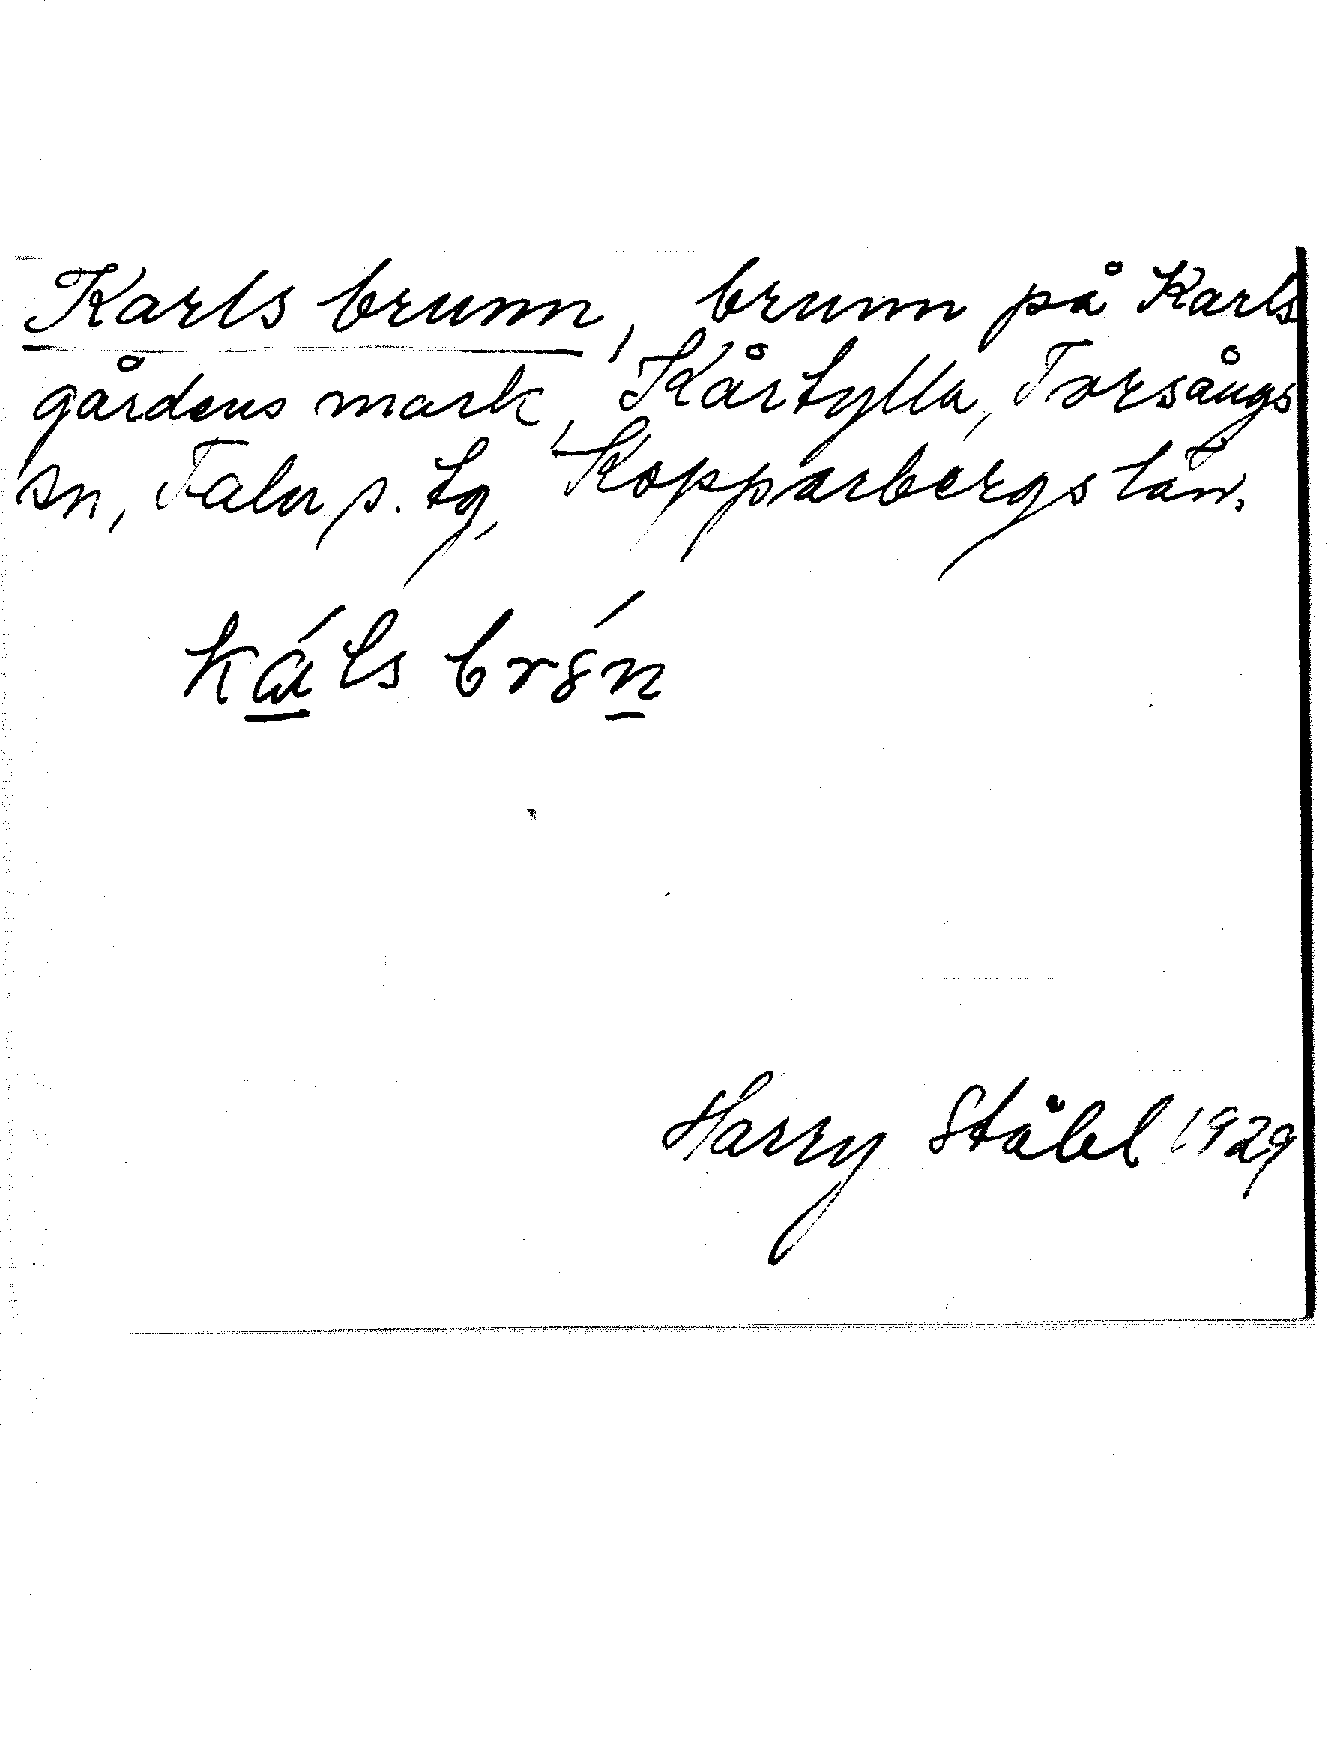 Karls brunn, brunn på Karls
gårdens mark, Kårtylla, Torsångs
sn, Falu s. tg, Kopparbergs län.
káls brśn
Harry Ståhl 1929